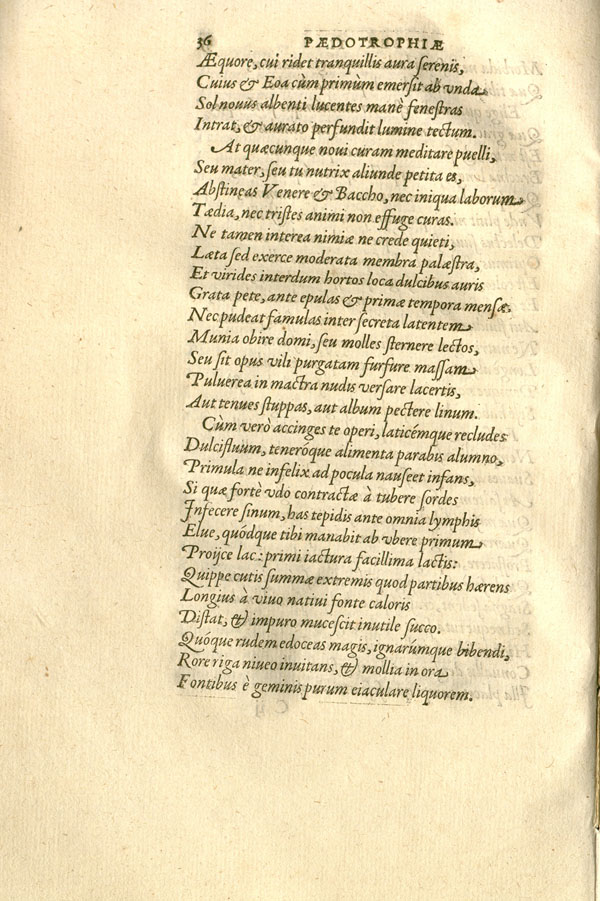 36 PÆDOTROPHIÆ
Æquore, cui ridet tranquillis aura serenis,
Cuius & Eoa cùm primùm emersit ab vnda
Sol nouus albenti lucentes manè fenestras
Intrat, & aurato perfundit lumine tectum.
At quæcunque noui curam meditare puelli,
Seu mater, seu tu nutrix aliunde petita es,
Abstineas Venere & Baccho, nec iniqua laborum
Tædia, nec tristes animi non effuge curas.
Ne tamen interea nimiæ ne crede quieti,
Læta sed exerce moderata membra palæstra,
Et virides interdum hortos loca dulcibus auris
Grata pete, ante epulas & primæ tempora mensæ.
Nec pudeat famulas inter secreta latentem
Munia obire domi, seu molles sternere lectos,
Seu sit opus vili purgatam furfure massam
Puluerea in mactra nudis versare lacertis,
Aut tenues stuppas, aut album pectere linum.
Cùm verò accinges te operi, laticémque recludes
Dulcifluum, teneróque alimenta parabis alumno,
Primula ne infelix ad pocula nauseet infans,
Si quæ fortè vdo contractæ à tubere sordes
Infecere sinum, has tepidis ante omnia lymphis
Elue, quódque tibi manabit ab vbere primum
Proijce lac: primi iactura facillima lactis:
Quippe cutis summæ extremis quod partibus hærens
Longius à viuo natiui fonte caloris
Distat, & impuro mucescit inutile succo.
Quóque rudem edoceas magis, ignarúmque bibendi,
Rore riga niueo inuitans, & mollia in ora
Fontibus è geminis purum eiaculare liquorem.